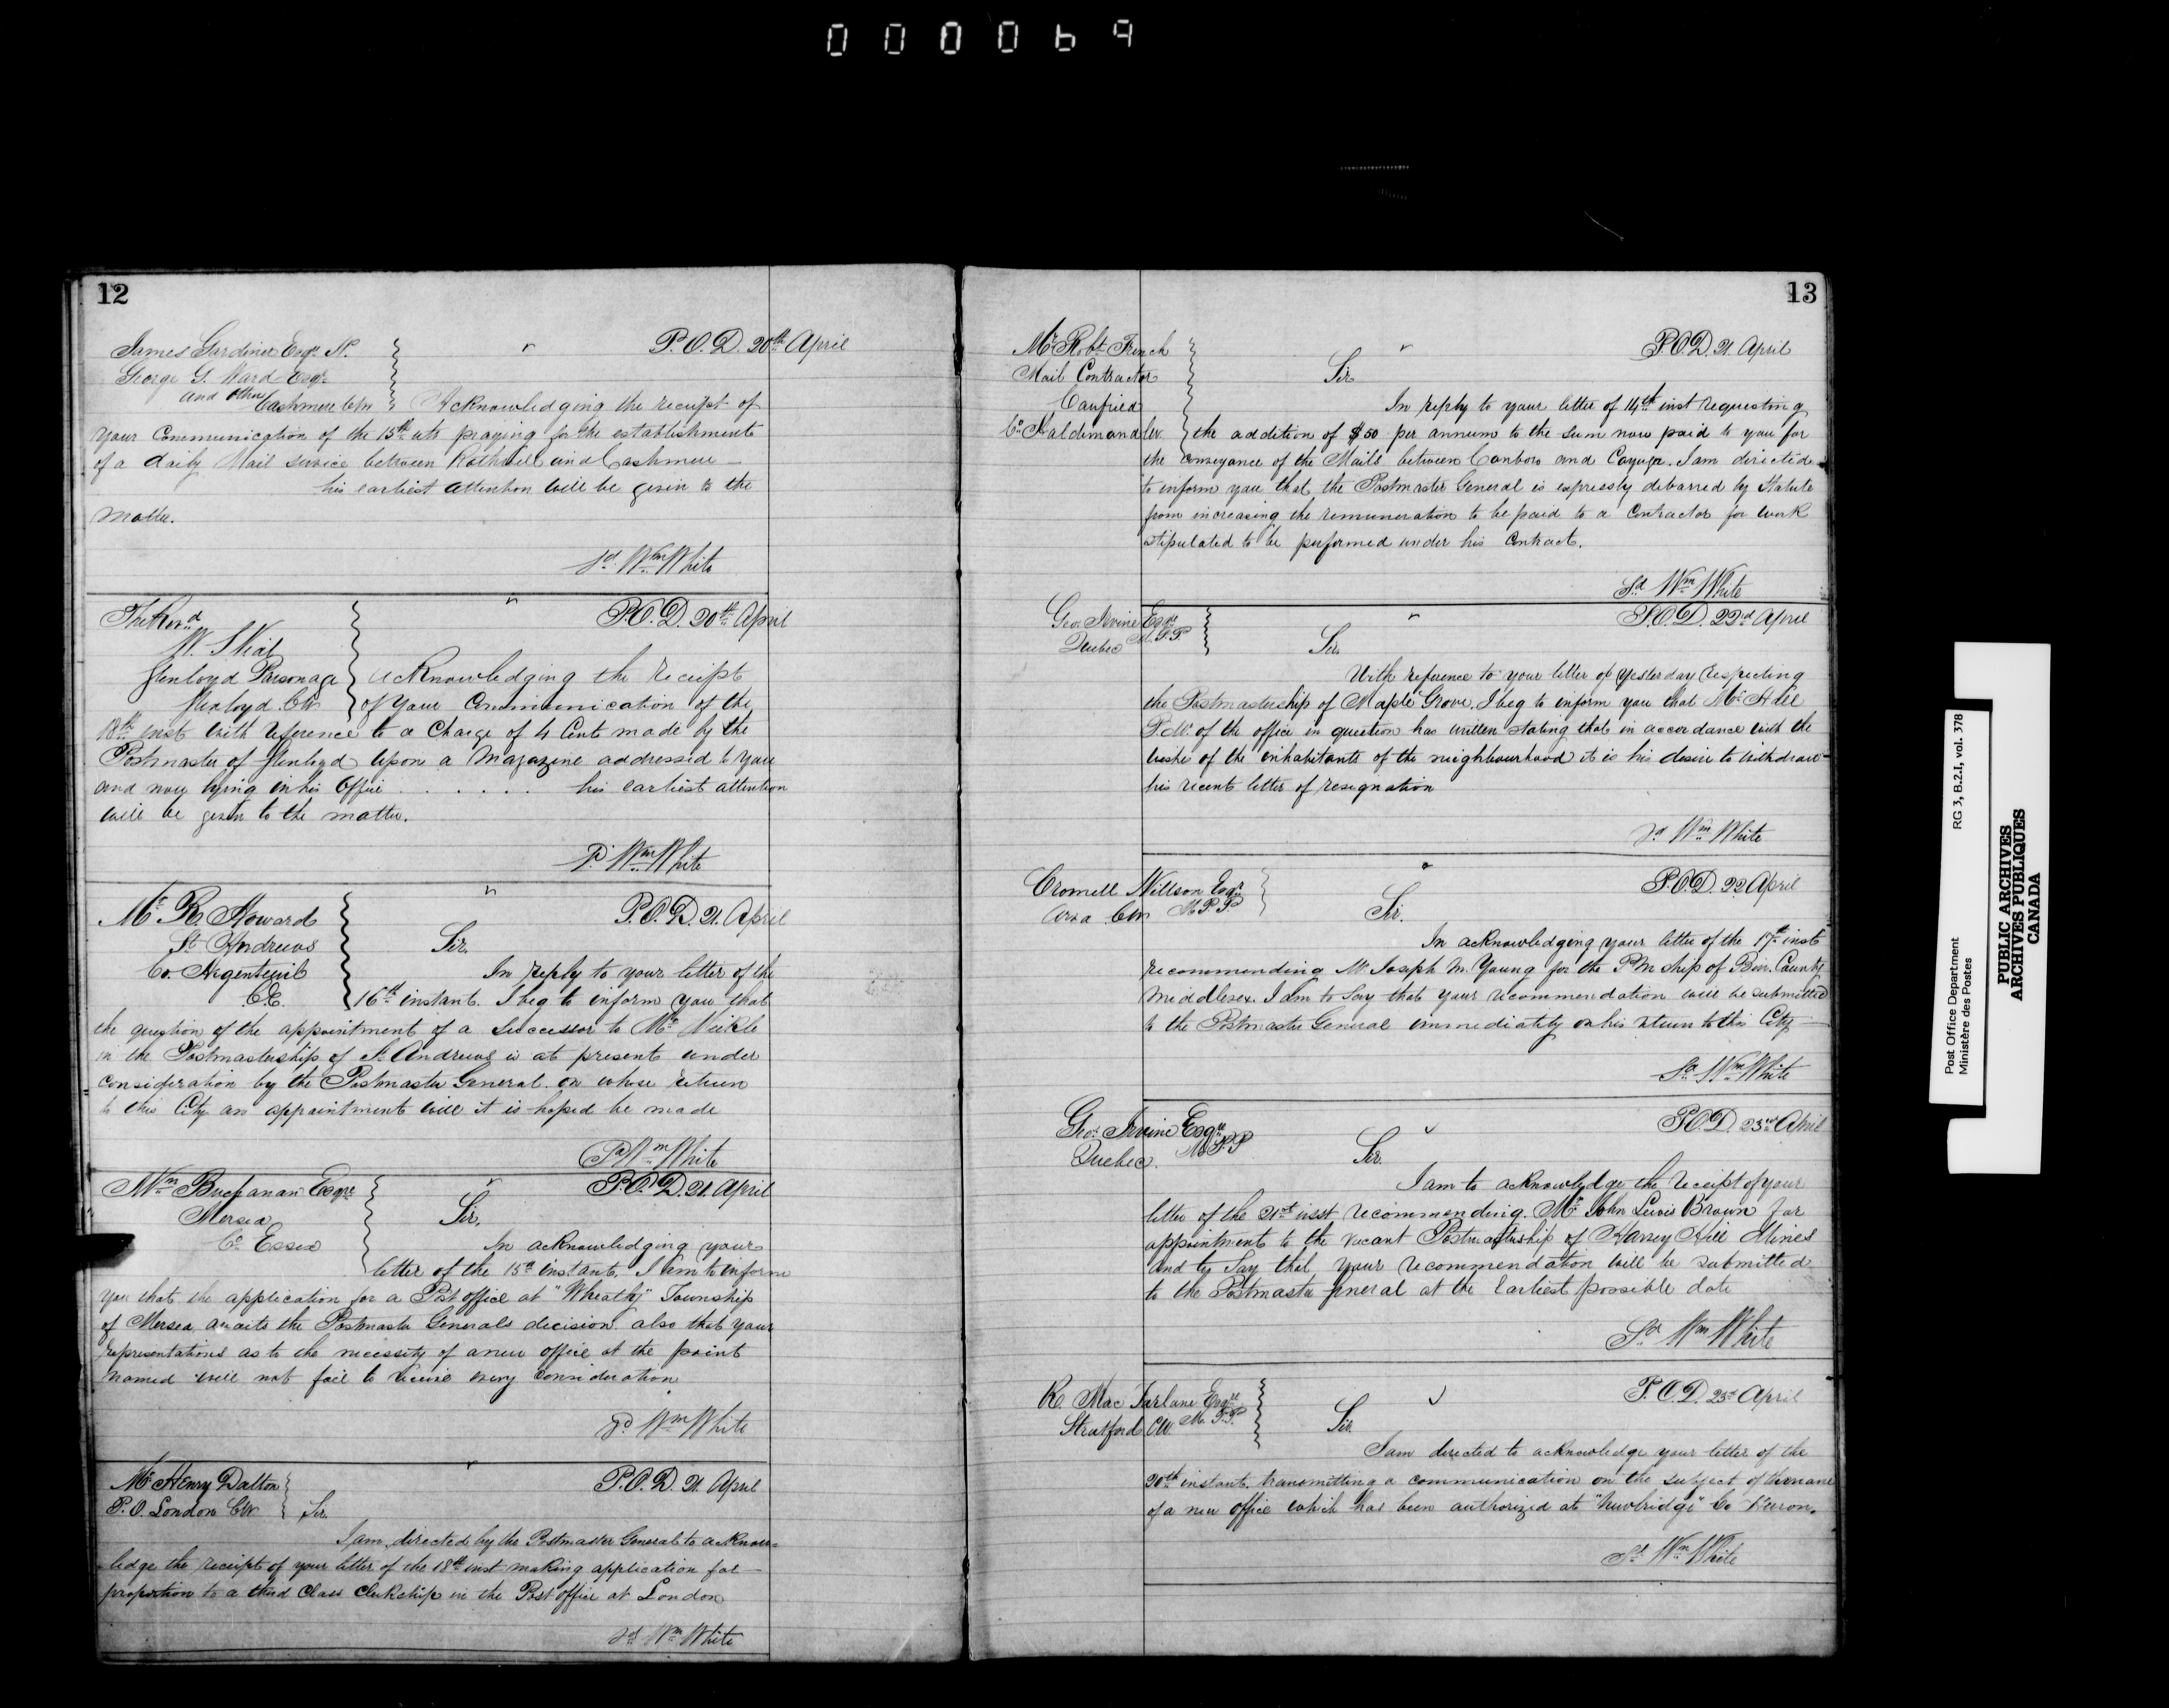 000069
12
James Gardiner Esqr
P.O.D. 20th April
George G. Ward Esqr
and others
Cashmere CW
Acknowledging the receipt of
your Communication of the 15th ulto praying for the establishment
of a daily Mail service between Bothwell and Cashmere
his earliest attention will be given to the
matter.
Sd Wm White
The Revd
P.O.D. 20th April
W. S.
Glenloyd Parsonage
Glenloyd CW
acknowledging the receipt
of your Communication of the
18th inst with reference to a Charge of 4 Cents made by the
Postmaster of Glenloyd upon a Magazine addressed to you
and now lying in his Office . . . . . . his earliest attention
will be given to the matter.
Sd Wm White
Mr R. Howard
P.O.D. 21. April
St Andrews
Sir,
Co. Argenteuil
C.E.
In reply to your letter of the
16th instant. I beg to inform you that
the question of the appointment of a Successor to Mr Meikle
in the Postmastership of St Andrews is at present under
consideration by the Postmaster General on whose return
to this City an appointment will it is hoped be made
Sd Wm White
Wm Buchanan Esqre
P.O.D. 21. April
Mersea
Sir,
Co Essex
In acknowledging your
letter of the 15th instant, I am to inform
you that the application for a Post office at "Wheatly" Township
of Mersea awaits the Postmaster Generals decision. also that your
representations as to the necessity of a new office at the point
named will not fail to receive every consideration
Sd Wm White
Mr Henry Dalton
P.O.D. 21. April
P.O. London CW
Sir,
I am directed by the Postmaster General to acknow-
ledge the receipt of your letter of the 18th inst making application for
promotion to a third Class Clerkship in the Post office at London
Sd Wm White
13
Mr Robt French
P.O.D. 21. April
Mail Contractor
Sir
Canfield
Co Haldimand CW
In reply to your letter of 14th inst requesting
the addition of $50 per annum to the sum now paid to you for
the conveyance of the Mails between Canboro and Cayuga. I am directed
to inform you that the Postmaster General is expressly debarred by Statute
from increasing the remuneration to be paid to a Contractor for work
stipulated to be performed under his Contract.
Sd Wm White
Geo. Irvine Esqre
M.P.P.
P.O.D. 22nd April
Quebec
Sir,
With reference to your letter of yesterday respecting
the Postmastership of Maple Grove. I beg to inform you that Mr Hall
P.M. of the office in question has written stating that in accordance with the
wishes of the inhabitants of the neighbourhood it is his desire to withdraw
his recent letter of resignation
Sd Wm White
Cromell Willson Esqr
M.P.P.
P.O.D. 22 April
CW
Sir.
In acknowledging your letter of the 17th inst
recommending Mr Joseph M. Young for the PM ship of County
Middlesex. I am to say that your recommendation will be submitted
to the Postmaster General immediately on his return to this City
Sd Wm White
Geo. Irvine Esqre
M.P.P
P.O.D. 23rd April
Quebec.
Sir.
I am to acknowledge the receipt of your
letter of the 21st inst recommending Mr John Lewis Brown for
appointment to the vacant Postmastership of Harvey Hill Mines
and to Say that your recommendation will be submitted
to the Postmaster General at the Earliest possible date
Sd Wm White
R. Mac Farlane Esqre
M.P.P.
P.O.D. 23rd April
Stratford CW
Sir.
I am directed to acknowledge your letter of the
20th instant, transmitting a communication on the subject of the name
of a new office which has been authorized at "Newbridge" Co Huron.
Sd Wm White
Post Office Department
Ministère des Postes
RG 3, B.2.I, vol. 378
PUBLIC ARCHIVES
ARCHIVES PUBLIQUES
CANADA